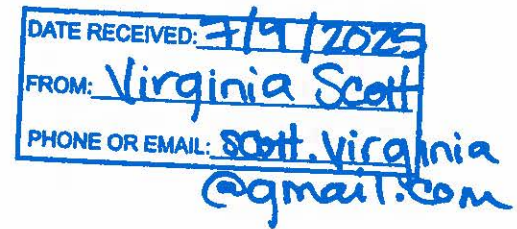 DATE RECEIVED: 7/9/2025
FROM: Virginia Scott
PHONE OR EMAIL: scott.virginia
@gmail.com